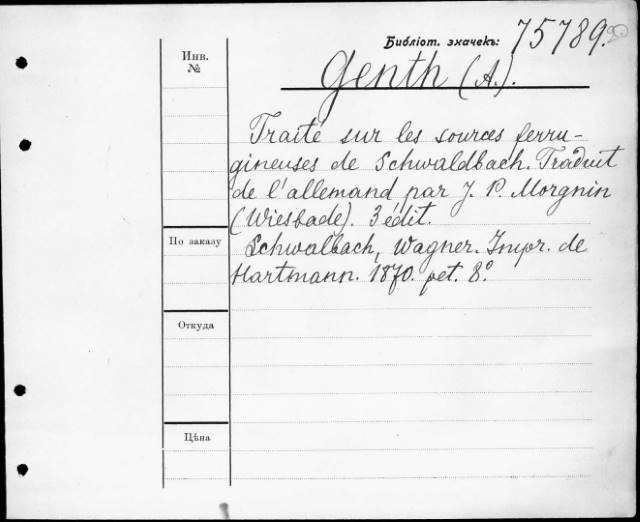 Библіот. значекъ: 75789.
Genth (A.).
Инв.
№
Traité sur les sources ferru-
gineuses de Schwaldbach. Traduit
de l'allemand par J. P. Morgnin
(Wiesbade). 3 édit.
По заказу
Schwalbach, Wagner. Impr. de
Hartmann. 1870. pet. 8°.
Откуда
Цѣна